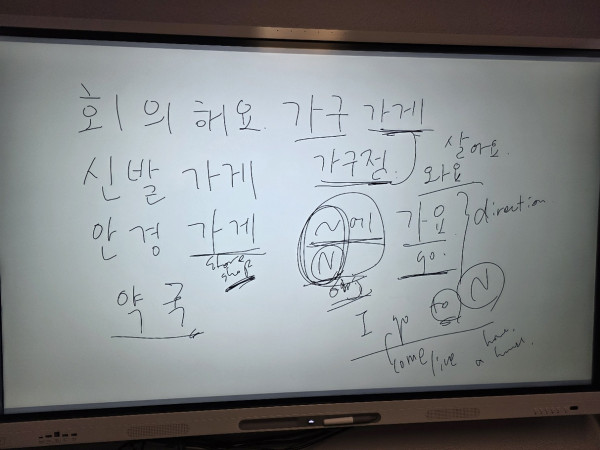 회의해요. 가구 가게
신발 가게 가구점. 살아요.
와요
안경 가게 ~에 가요 direction
N go.
store
shop
약국 I go to N
come live